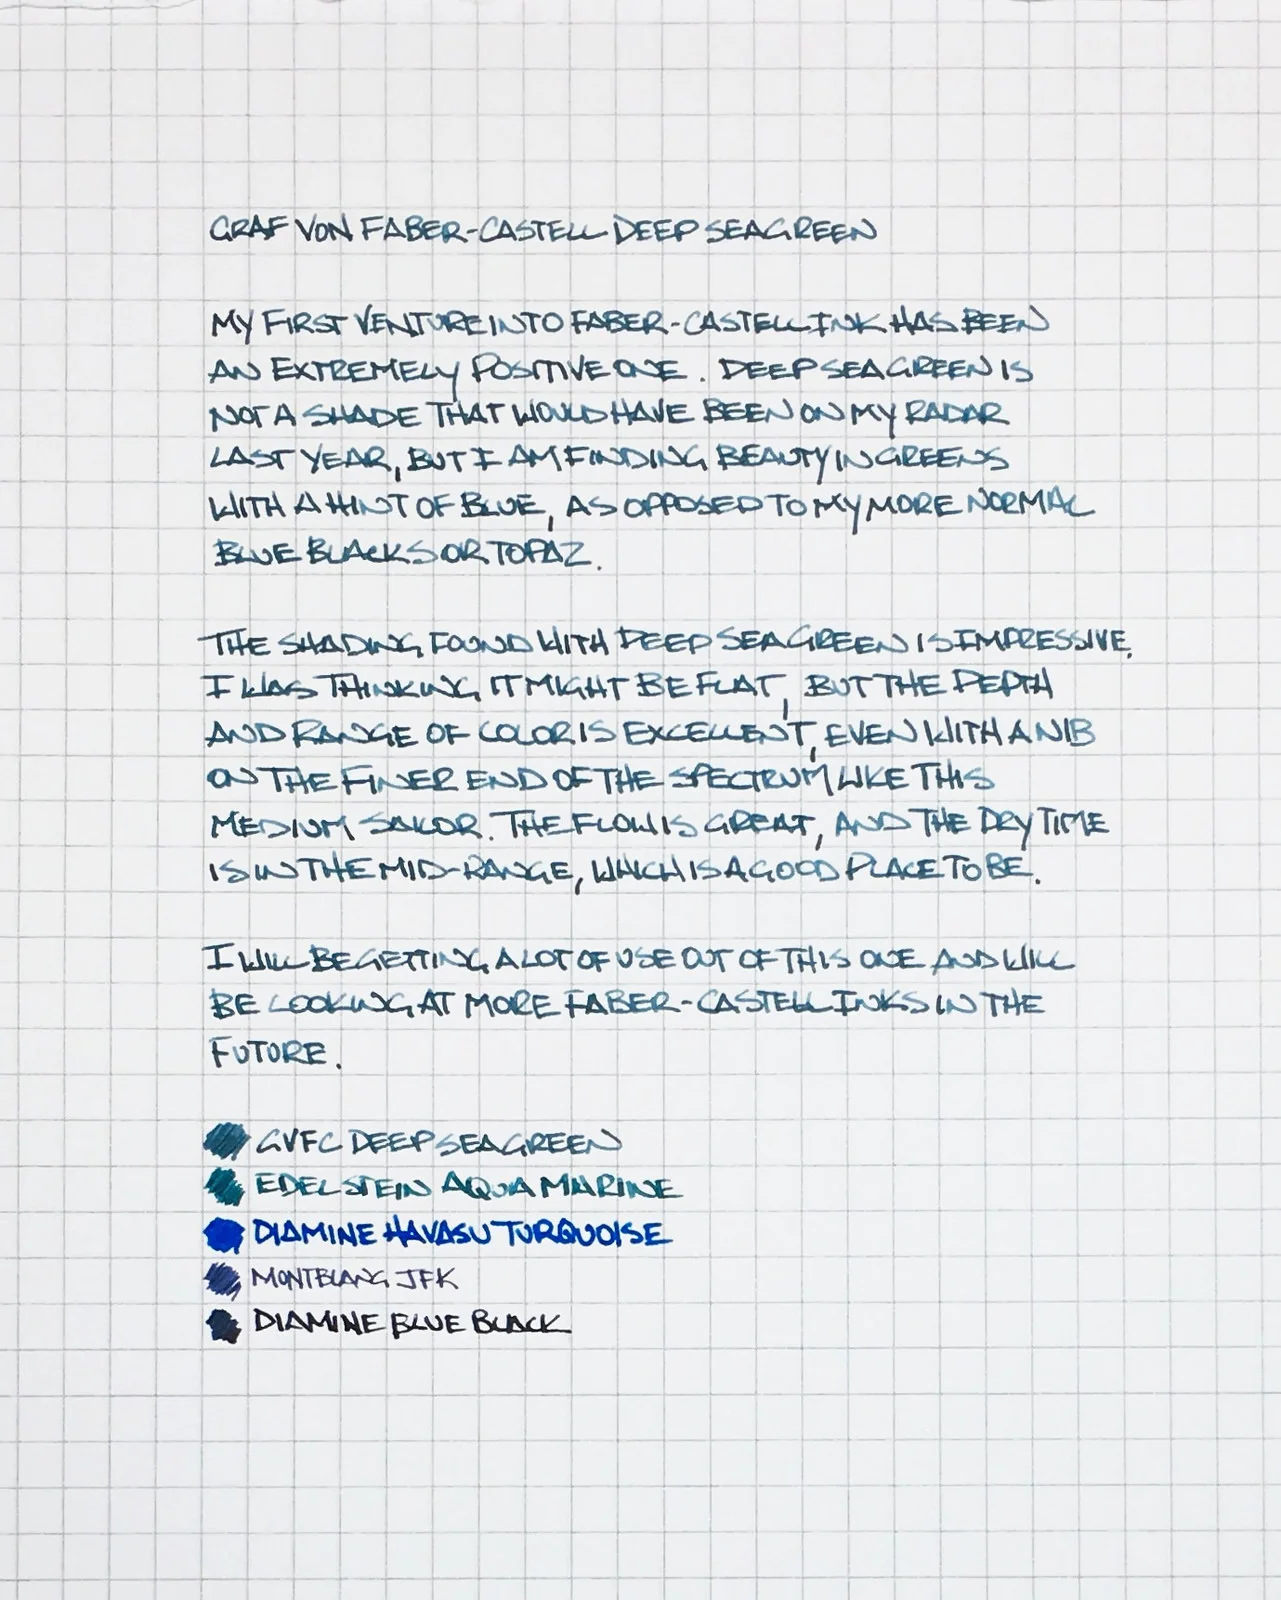 GRAF VON FABER-CASTELL DEEP SEA GREEN
MY FIRST VENTURE INTO FABER-CASTELL INK HAS BEEN
AN EXTREMELY POSITIVE ONE. DEEP SEA GREEN IS
NOT A SHADE THAT WOULD HAVE BEEN ON MY RADAR
LAST YEAR, BUT I AM FINDING BEAUTY IN GREENS
WITH A HINT OF BLUE, AS OPPOSED TO MY MORE NORMAL
BLUE BLACKS OR TOPAZ.
THE SHADING FOUND WITH DEEP SEA GREEN IS IMPRESSIVE.
I WAS THINKING IT MIGHT BE FLAT, BUT THE DEPTH
AND RANGE OF COLOR IS EXCELLENT, EVEN WITH A NIB
ON THE FINER END OF THE SPECTRUM LIKE THIS
MEDIUM SAILOR. THE FLOW IS GREAT, AND THE DRY TIME
IS IN THE MID-RANGE, WHICH IS A GOOD PLACE TO BE.
I WILL BE GETTING A LOT OF USE OUT OF THIS ONE AND WILL
BE LOOKING AT MORE FABER-CASTELL INKS IN THE
FUTURE.
GVFC DEEP SEA GREEN
EDELSTEIN AQUAMARINE
DIAMINE HAVASU TURQUOISE
MONTBLANC JFK
DIAMINE BLUE BLACK